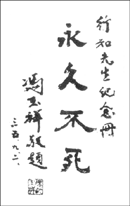 行知先生纪念册
永久不死
冯玉祥敬题
三五、九、二、